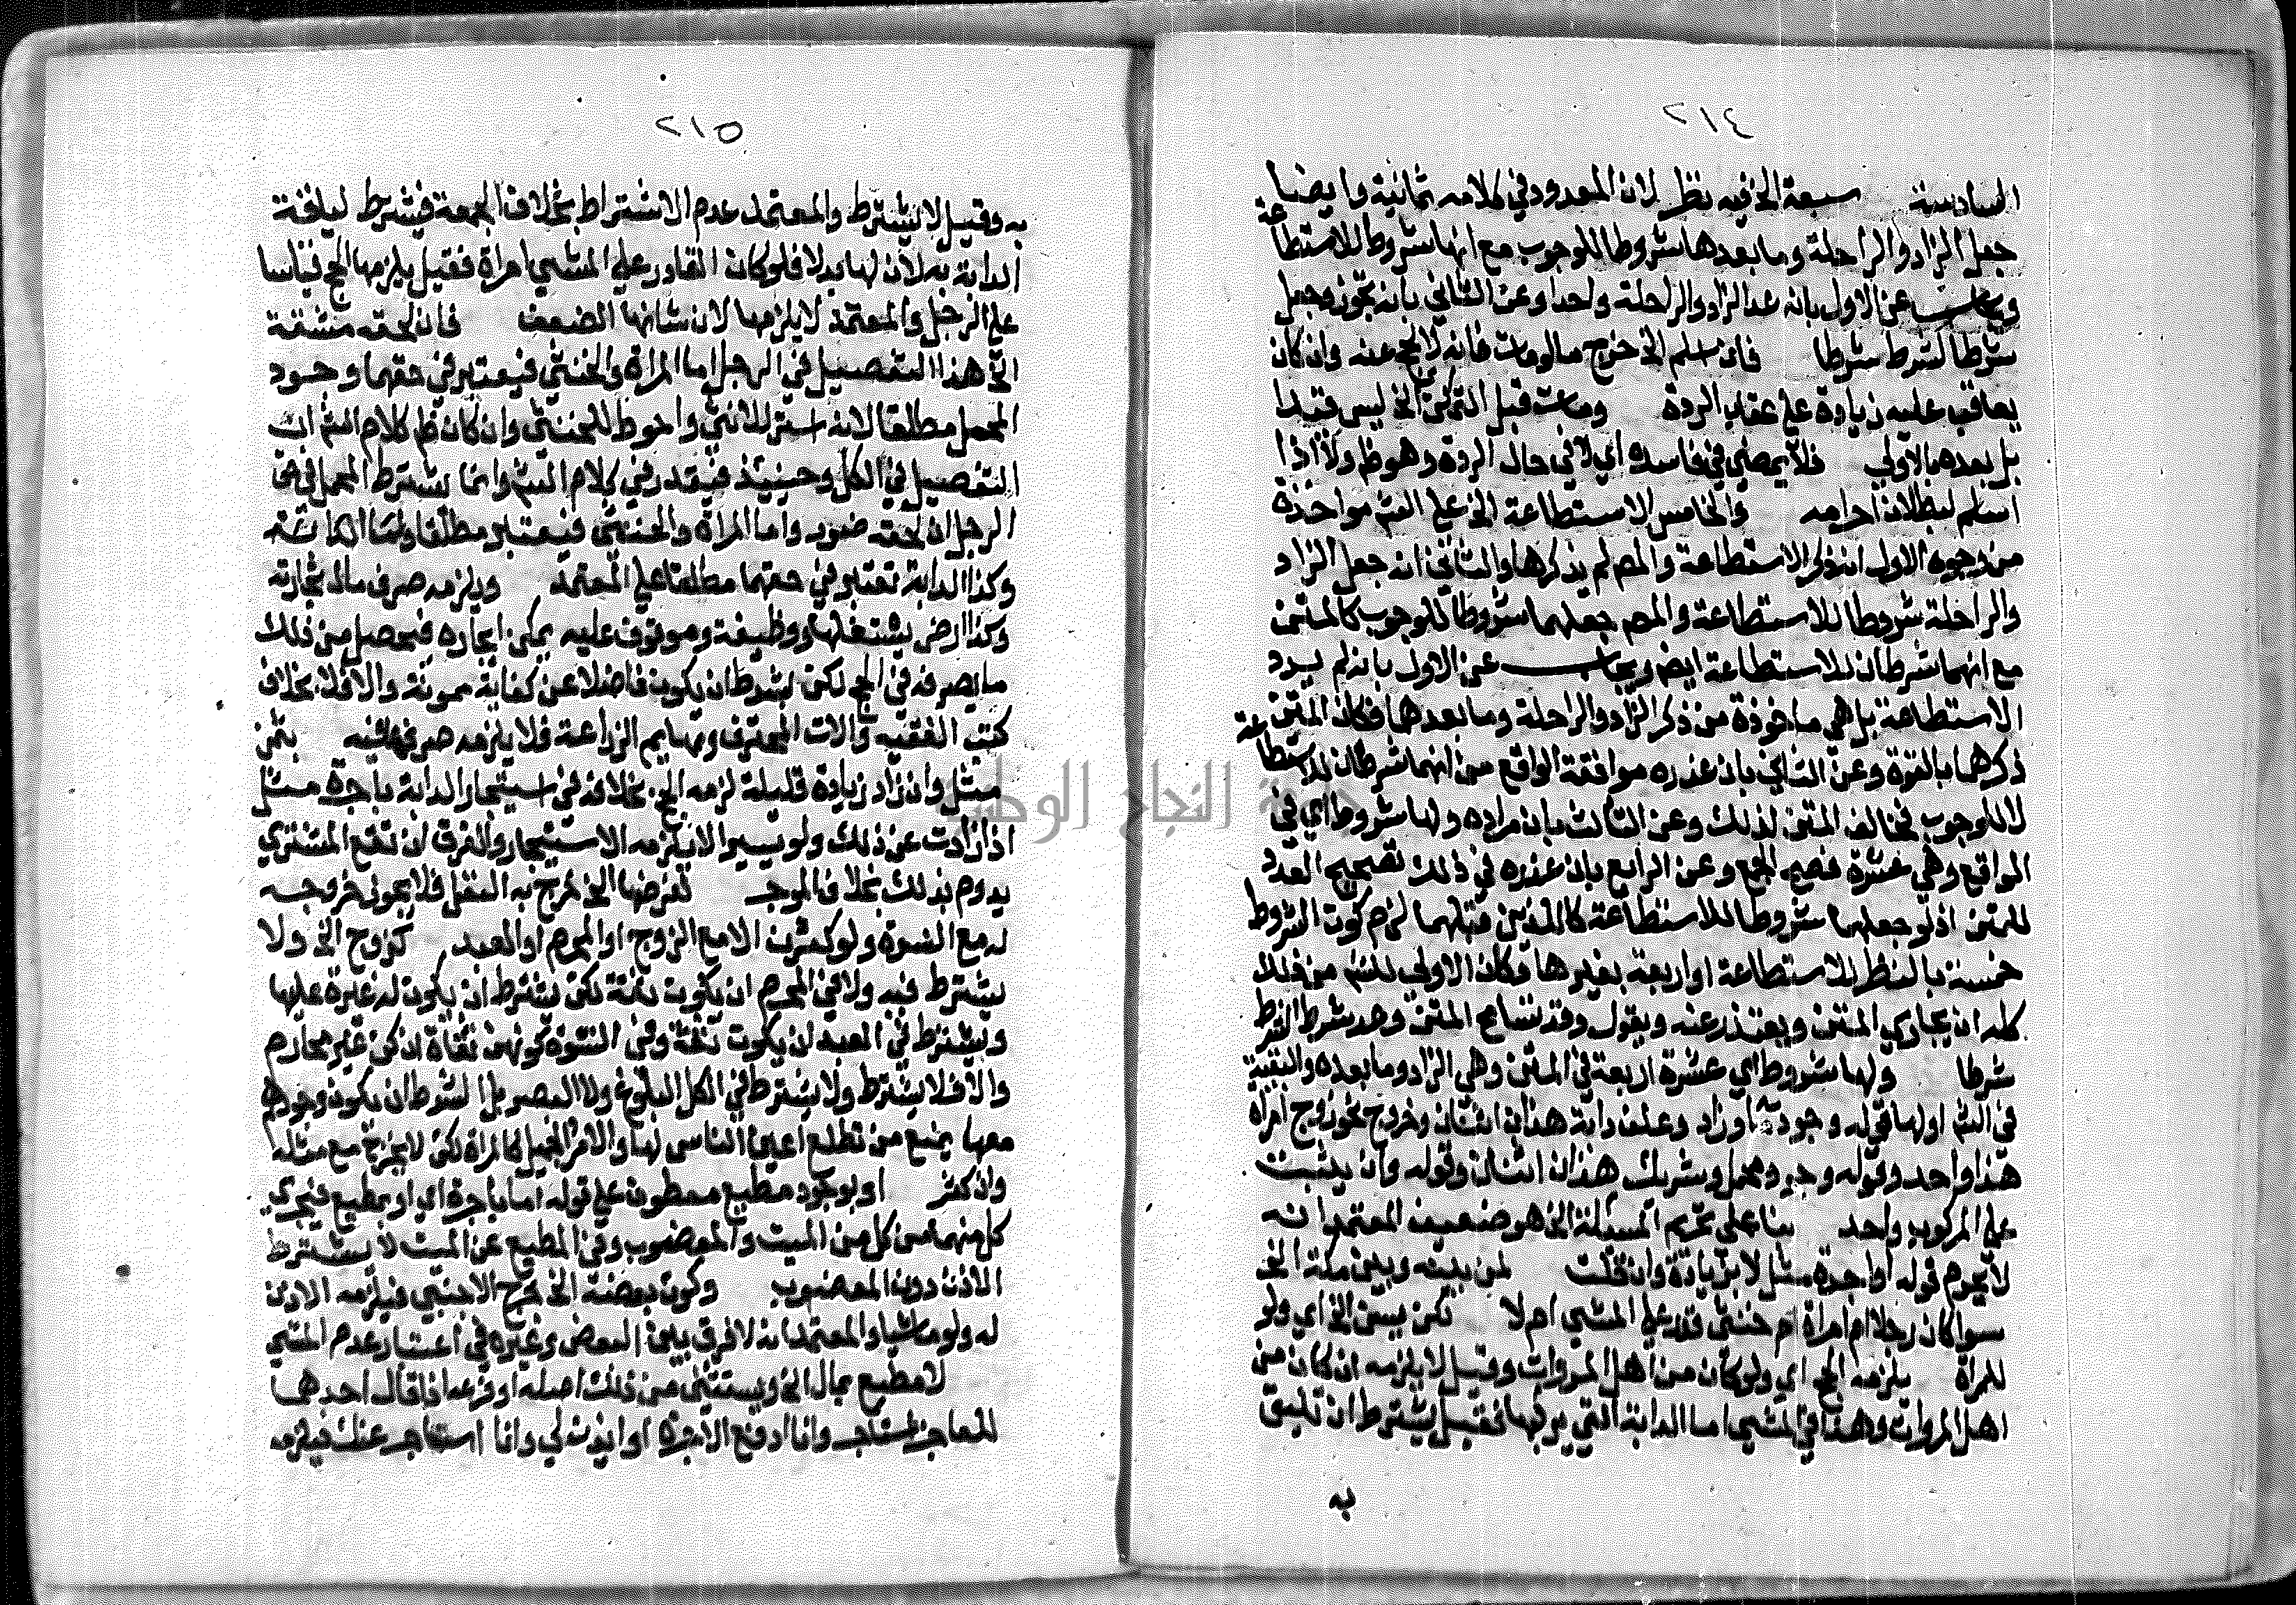 ٢١٤
السادسة سبعة الخ فيه نظر لان المعدود في كلامه ثمانية وايضا
جعل الزاد والراحلة وما بعدها شروطا للوجوب مع انها شروط للاستطاعة
ويجاب عن الاول بانه عد الزاد والراحلة واحدا وعن الثاني بانه تجوز وجعل
شرط الشرط شرطا فان اسلم الخ خرج ما لو مات فانه لا يحج عنه وان كان
يعاقب عليه زيادة على عقاب الردة ومات قبل التمكن الخ ليس قيدا
بل بعده بالاولى فلا يمضي في فاسده اي لا في حال الردة وهو ظ ولا اذا
اسلم لبطلان احرامه والخامس الاستطاعة الخ على الش مواخذة
من وجوه الاول انه ذكر الاستطاعة والمص لم يذكرها والثاني انه جعل الزاد
والراحلة شروطا للاستطاعة والمص جعلهما شروطا للوجوب كالمتن
مع انهما شرطان للاستطاعة ايض ويجاب عن الاول بانه لم يرد
الاستطاعة بل هي ماخوذة من ذكر الزاد والراحلة وما بعدها فكان المتن
ذكرها بالقوة وعن الثاني بان عذره موافقة الواقع من انهما شرطان للاستطاعة
لا للوجوب فخالف المتن لذلك وعن الثالث بان مراده ولها شروط اي في
الواقع وهي عشرة فصح الجمع وعن الرابع بان عذره في ذلك تصحيح العدد
للمتن اذ لو جعلهما شروطا للاستطاعة كالذين قبلهما لزم كون الشروط
خمسة بالنظر للاستطاعة او اربعة بغيرها فكان الاولى للش من ذلك
كله ان يجاري المتن ويعتذر عنه ويقول وقد تسامح المتن وعد شرط الشرط
شرطا ولها شروط اي عشرة اربعة في المتن وهي الزاد وما بعده والبقية
في الش اولها قوله وجود ماء وزاد وعلف دابة هذان اثنان وخروج نحو زوج امراة
هذا واحد وقوله وجود محمل وشريك هذان اثنان وقوله وان يثبت
على المركوب واحد بنا على تحريم المسئلة الخ هو ضعيف المعتمد انه
لا يحرم قوله او اجرة مثل لا بزيادة وان قلت لمن بينه وبين مكة الخ
سوا كان رجلا ام امراة ام خنثى قدر على المشي ام لا لكن يسن الخ اي ولو
للمراة يلزمه الحج اي ولو كان من اهل المروات وقيل لا يلزمه ان كان من
اهل المروات وهذا في المشي اما الدابة التي يركبها فقيل يشترط ان تليق
به
٢١٥
به وقيل لا يشترط والمعتمد عدم الاشتراط بخلاف الجمعة فيشترط لياقة
الدابة به لان لها بدلا فلو كان القادر على المشي امراة فقيل يلزمها الحج قياسا
على الرجل والمعتمد لا يلزمها لان شانها الضعف فان لحقه مشقة
الخ هذا التفصيل في الرجل اما المراة والخنثى فيعتبر في حقهما وجود
المحمل مطلقا لانه استر للانثى واحوط للخنثى وان كان ظ كلام الش ان
التفصيل في الكل وحينئذ فيقدر في كلام الش وانما يشترط المحمل في حق
الرجل ان لحقه ضرر واما المراة والخنثى فيعتبر مطلقا
وكذا الدابة تعتبر في حقهما مطلقا على المعتمد ويلزمه صرف مال تجارته
وكذا ارض يشتغلها ووظيفة وموقوف عليه يمكن ايجاره فيحصل من ذلك
ما يصرفه في الحج لكن بشرط ان يكون فاضلا عن كفاية ممونه والا فلا بخلاف
كتب الفقيه والات المحترف وبهايم الزراعة فلا يلزمه صرفها فيه بثمن
مثل وان زاد زيادة قليلة لزمه الحج بخلافه في استيجار الدابة باجرة مثل
اذا زادت عن ذلك ولو يسيرا لا يلزمه الاستيجار والفرق ان نفع المشتري
يدوم بذلك بخلاف الموجر لفرضها الخ خرج به النفل فلا يجوز خروجه
له مع النسوة ولو كثرن الا مع الزوج او المحرم او العبد كزوج الخ ولا
يشترط فيه ولا في المحرم ان يكون ثقة لكن يشترط ان يكون له غيرة عليها
ويشترط في العبد ان يكون ثقة وفي النسوة كونهن ثقاة ان كن غير محارم
والا فلا يشترط ولا يشترط في الكل البلوغ ولا البصر بل الشرط ان يكون وجودهم
معها يمنع من تطلع اعين الناس لها والامرد الجميل كالمراة لكن لا يخرج مع مثله
وان كثر او بوجود مطيع معطوف على قوله اما باجرة اي او بمطيع فيجري
كل منهما من كل من الميت والمعضوب وفي المطيع عن الميت لا يشترط
الاذن دون المعضوب وكون بعضه الخ خرج الاجنبي فيلزمه الاذن
له ولو ماشيا والمعتمد انه لا فرق بين البعض وغيره في اعتبار عدم المشي
لا مطيع بمال الخ ويستثنى من ذلك اصله او فرعه اذا قال احدهما
للعاجز استاجر وانا ادفع الاجرة او ايذن لي وانا استاجر عنك فيلزمه
جامعة النجاح الوطنية